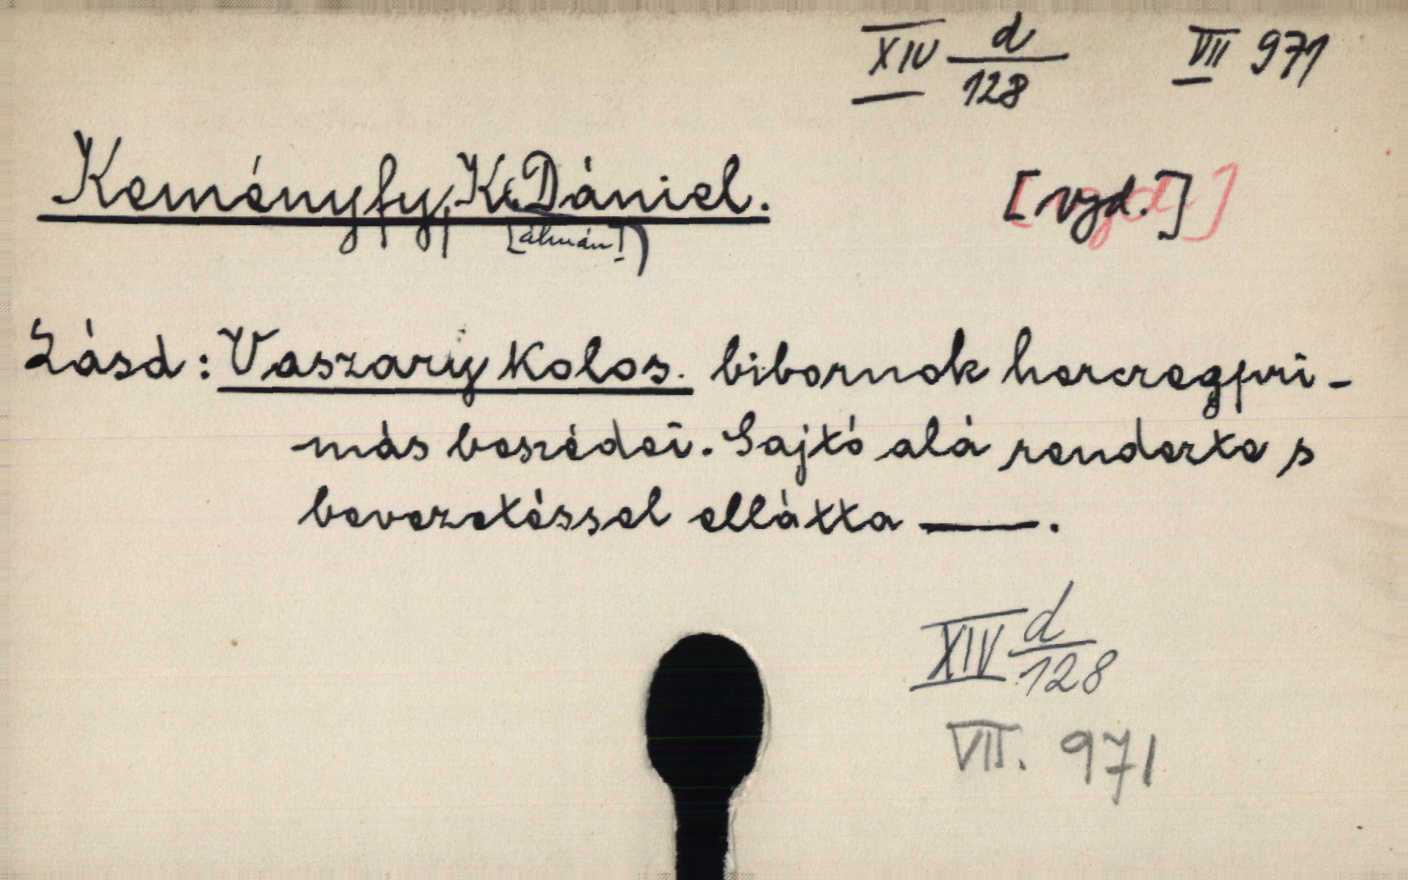 XIV d/128 VII 971
Keményfy, K. Dániel. [vgd.]
[álmán])
Lásd: Vaszary Kolos. bibornok herczegpri-
más beszédei. Sajtó alá rendezte s
bevezetéssel ellátta ——.
XIV d/128
VII. 971